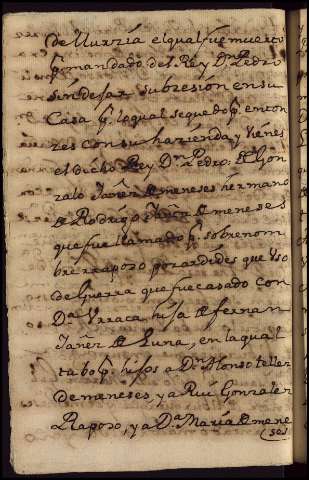 de Murzia el qual fue muerto
por mandado del Rey Dn. Pedro
sin dejar subresion en su
Casa pr. lo qual se quedo pr. enton
zes con su hazienda y vienes
el Dicho Rey Dn. Pedro: el Gon
zalo Yañez de meneses hermano
de Rodrigo Yañez de meneses
que fue llamado pr. sobrenom
bre raposo por ardides que Uso
de Guerra que fue casado con
Da. Urraca hija de fernan
Yañez de Luna, en la qual
tubo pr. hijos a Dn. Alonso tellez
de meneses, ya Rui Gonzalez
Raposo, ya Da. Maria de mene
(ses